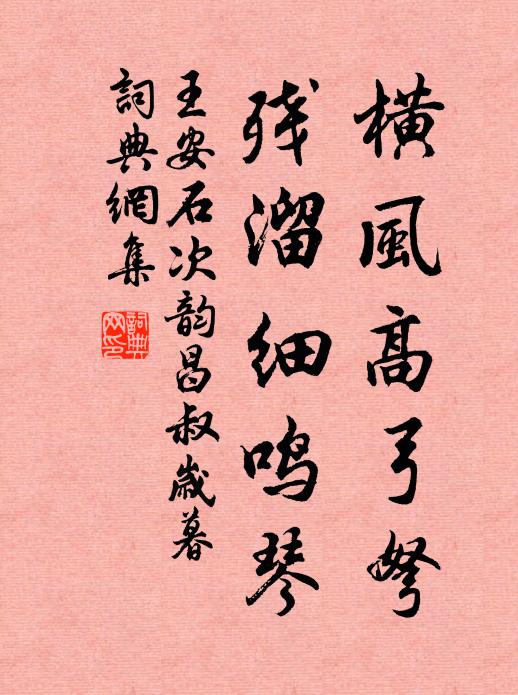 横風高弓弩
残溜细鸣琴
王安石次韵昌叔歲暮
詞典網集
詞典網印